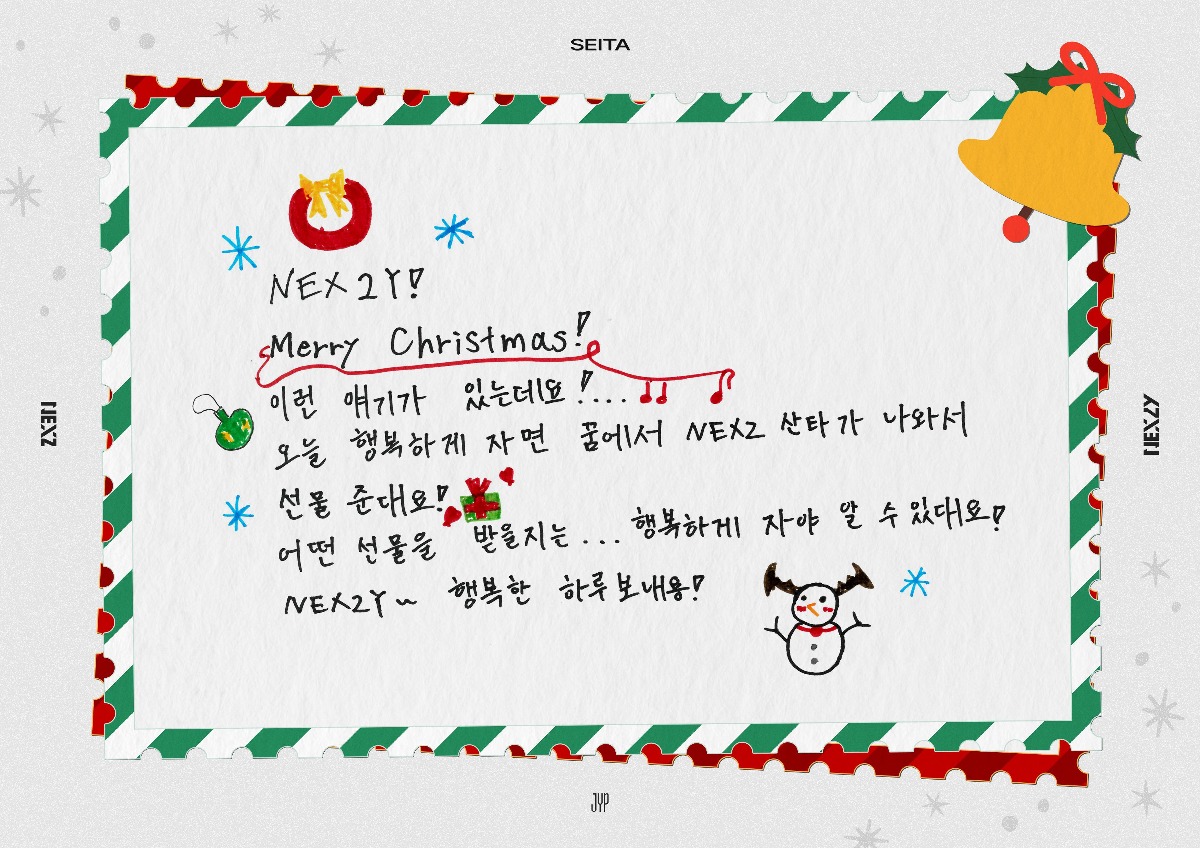 SEITA
NEX2Y!
Merry Christmas!
이런 얘기가 있는데요!....
오늘 행복하게 자면 꿈에서 NEXZ 산타가 나와서
선물 준대요!
어떤 선물을 받을지는... 행복하게 자야 알 수 있대요!
NEX2Y~ 행복한 하루 보내용!
NEXZ
NEX2Y
JYP